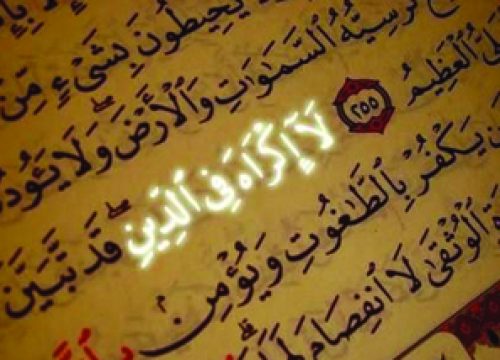 يُحِيطُونَ بِشَىْءٍ مِّنْ
كُرْسِيُّهُ ٱلسَّمَٰوَٰتِ وَٱلْأَرْضَ ۖ وَلَا يَـُٔودُهُ
ٱلْعَظِيمُ ٢٥٥ لَآ إِكْرَاهَ فِى ٱلدِّينِ ۖ قَد تَّبَيَّنَ
يَكْفُرْ بِٱلطَّٰغُوتِ وَيُؤْمِنۢ
ٱلْوُثْقَىٰ لَا ٱنفِصَامَ لَهَا ۗ